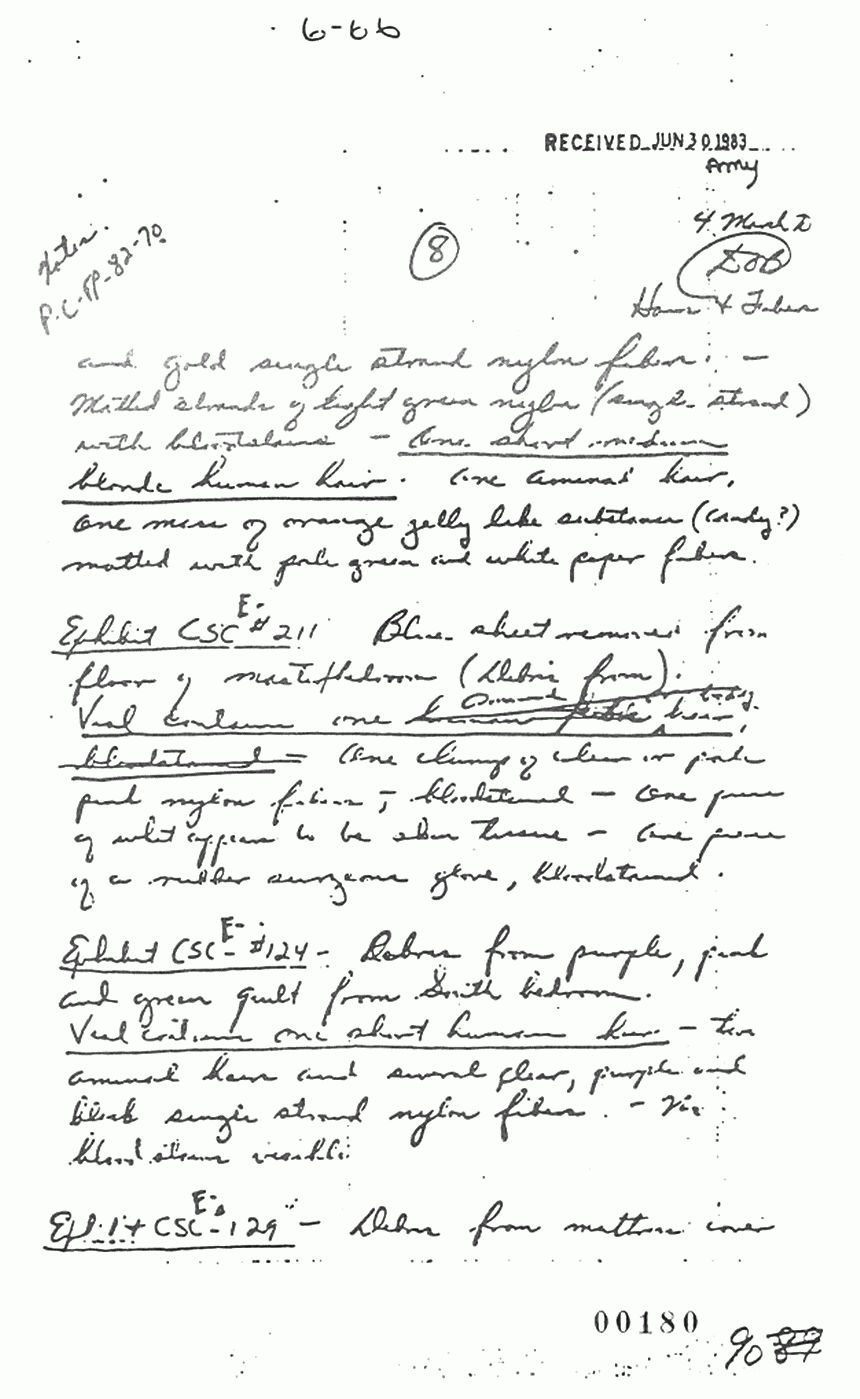 6-66
RECEIVED JUN 30 1983
Army
4 March
Notes.
P.C-FP-82-70
8
Hairs & Fibers
and gold single strand nylon fibers. -
Matted strands of light green nylon (single strand)
with bloodstains - One short medium
blonde human hair. One animal hair,
one mass of orange jelly like substance (candy?)
matted with pale green and white paper fibers.
E-
Exhibit CSC # 211 Blue sheet removed from
floor of master bedroom (Debris from).
Vial contains one human hair,
bloodstained - One clump of clear or pale
pink nylon fibers, bloodstained - One piece
of what appears to be skin tissue - One piece
of a rubber surgeons glove, bloodstained.
E-
Exhibit CSC- #124 - Debris from purple, pink
and green quilt from South bedroom.
Vial contains one short human hair - two
animal hairs and several clear, purple and
black single strand nylon fibers. - No
bloodstains visible.
E-
Exhibit CSC-129 - Debris from mattress cover
00180
90 89